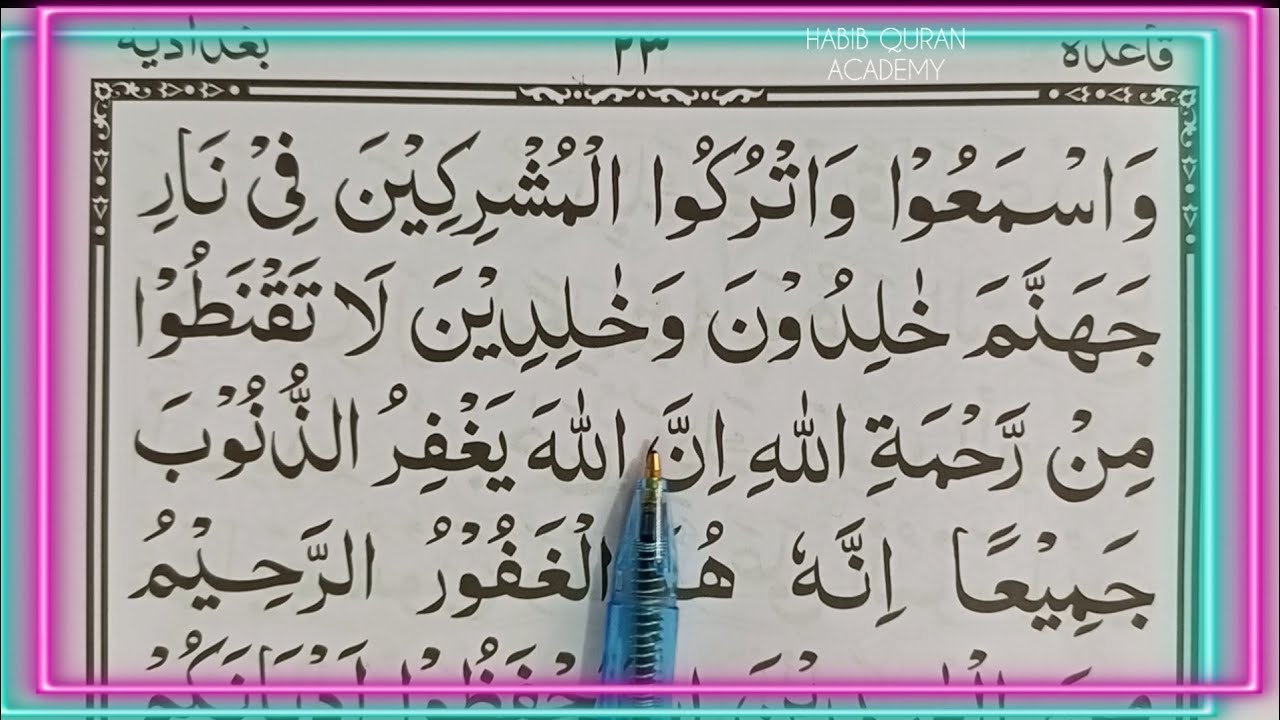 قاعده ٢٣ بغدادیه
HABIB QURAN
ACADEMY
وَاسْمَعُوْا وَاتْرُكُوا الْمُشْرِكِيْنَ فِيْ نَارِ
جَهَنَّمَ خٰلِدُوْنَ وَخٰلِدِيْنَ لَا تَقْنَطُوْا
مِنْ رَّحْمَةِ اللهِ اِنَّ اللهَ يَغْفِرُ الذُّنُوْبَ
جَمِيْعًا اِنَّهٗ الْغَفُوْرُ الرَّحِيْمُ